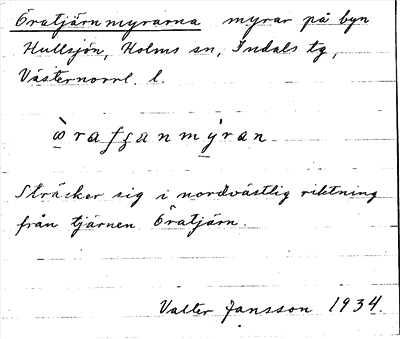 Öratjärnmyrarna myrar på byn
Hullsjön, Holms sn, Indals tg,
Västernorrl. l.
ö̀raʃʃanmýran
Sträcker sig i nordvästlig riktning
från tjärnen Öratjärn.
Valter Jansson 1934.